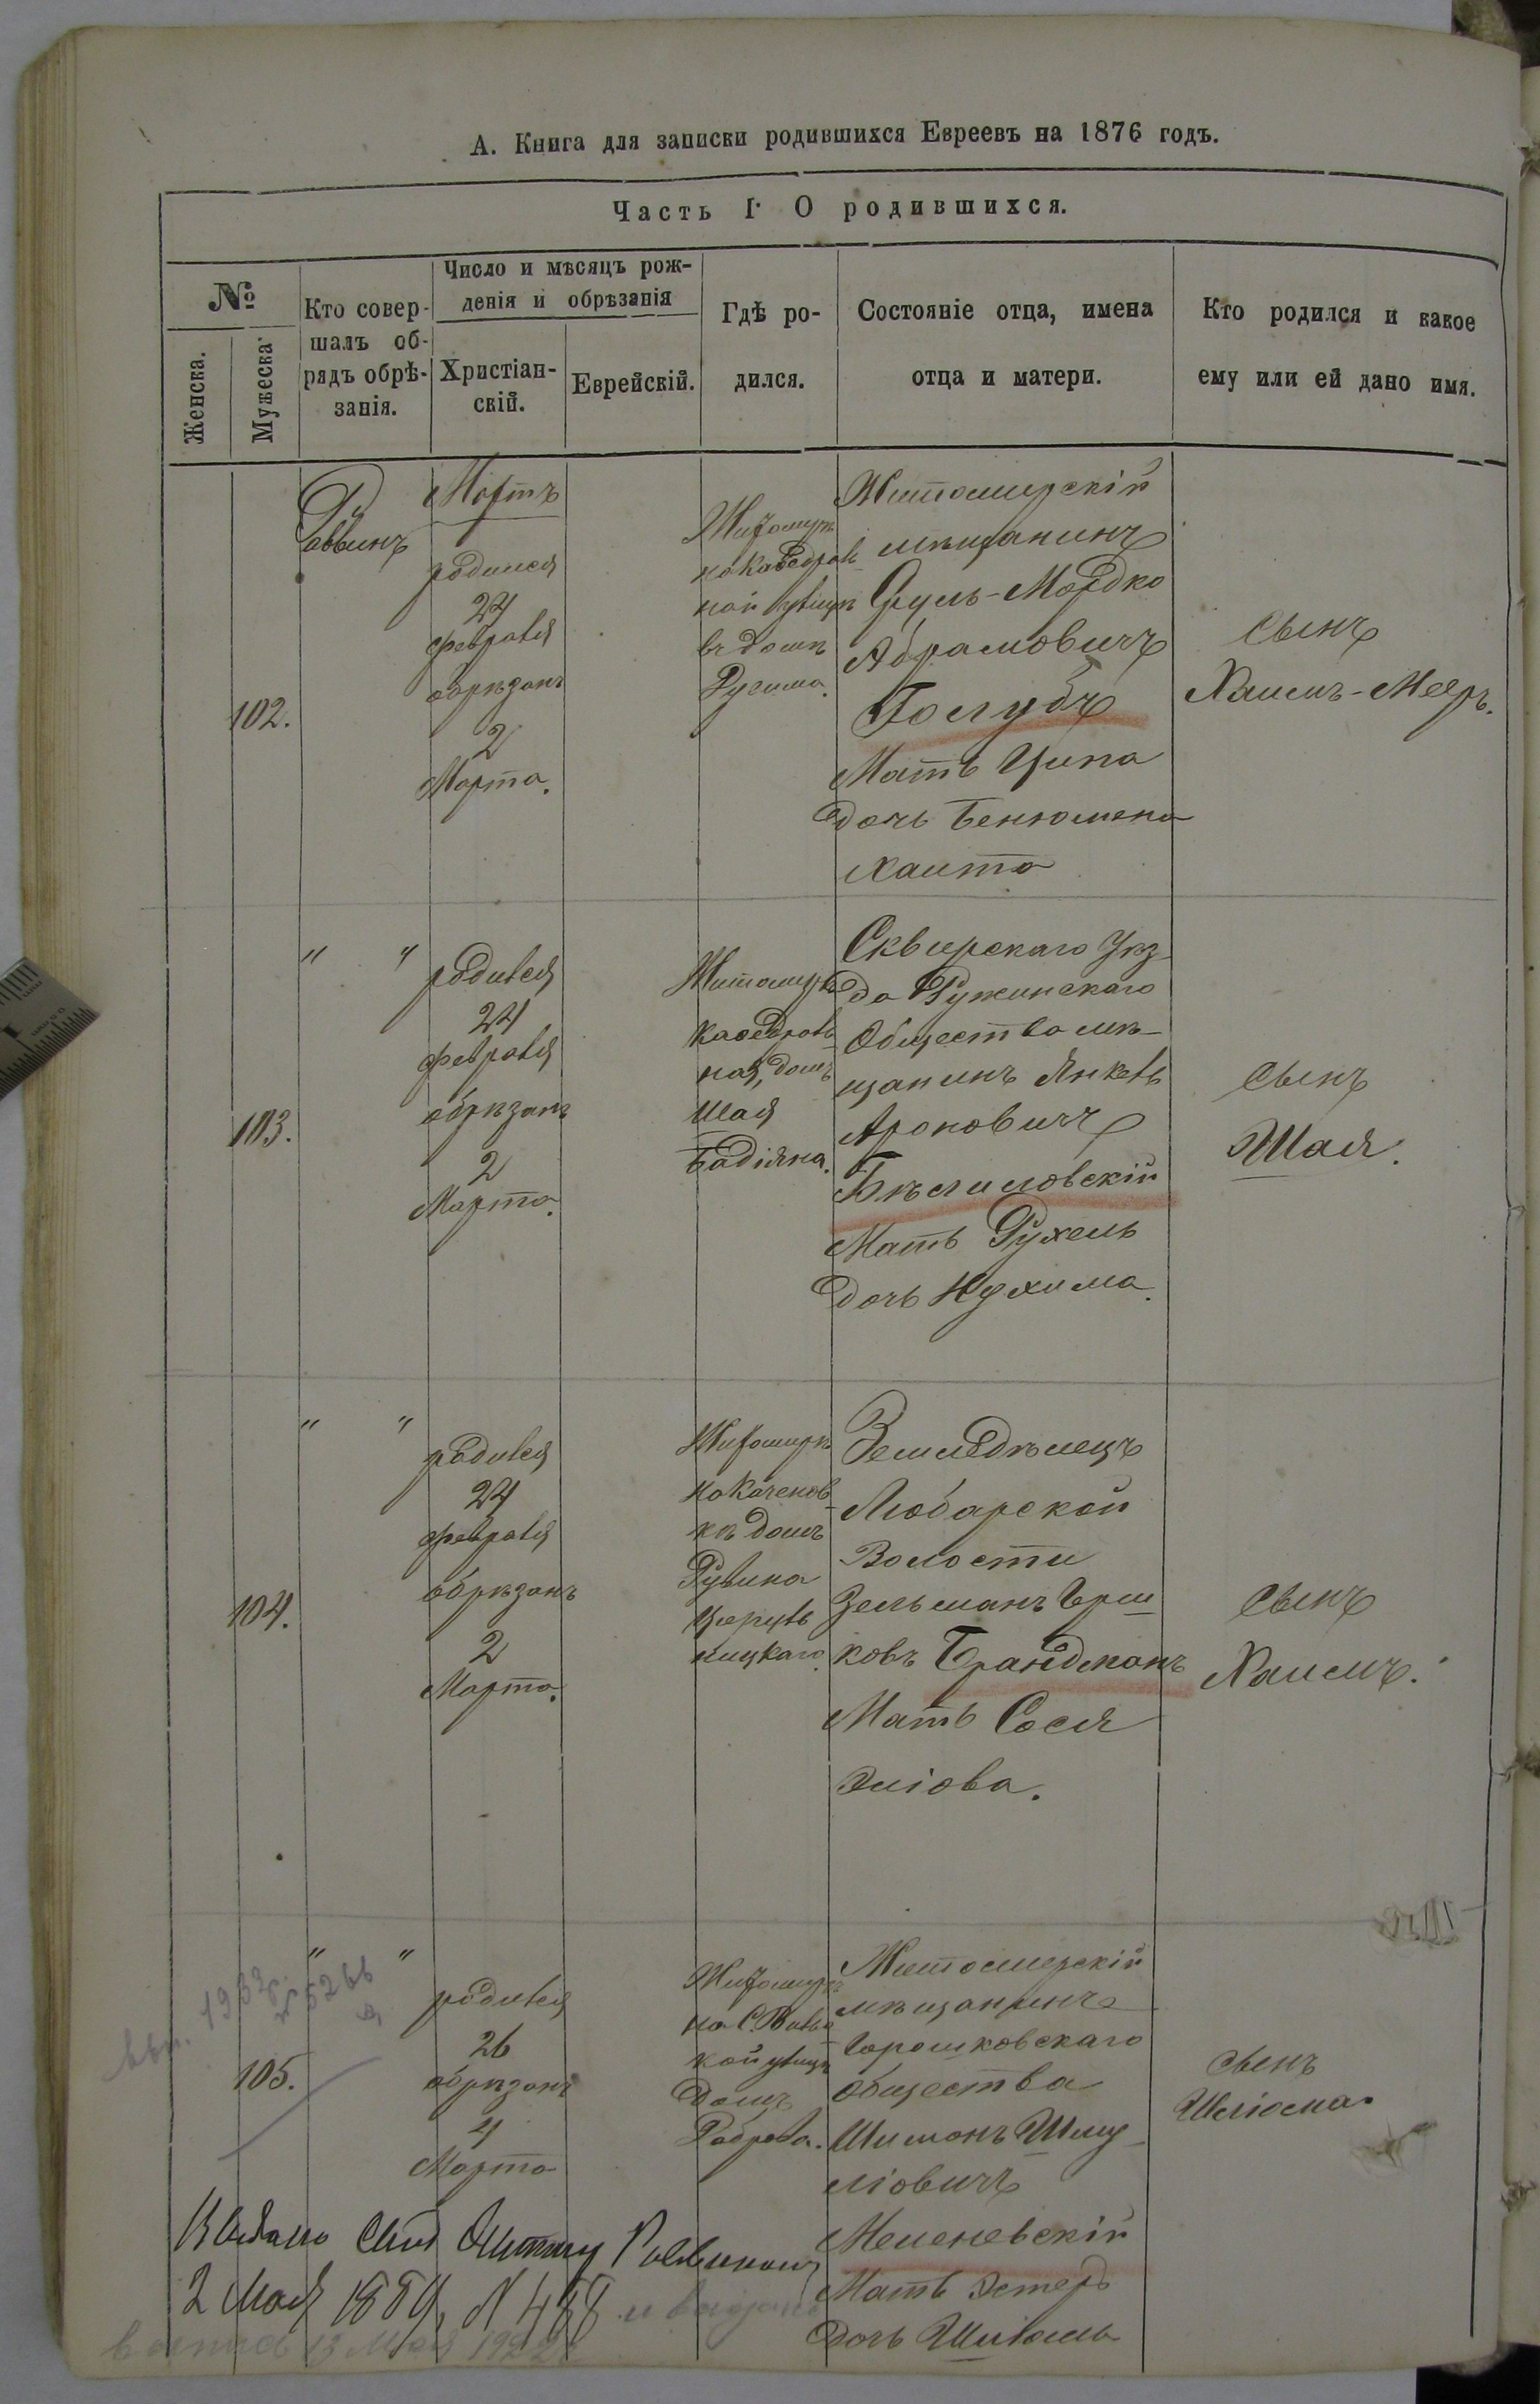 А. Книга для записки родившихся Евреевъ на 1876 годъ.
Часть I. О родившихся.
№
Женска.
Мужеска.
Кто совер-
шалъ об-
рядъ обрѣ-
занія.
Число и мѣсяцъ рож-
денія и обрѣзанія
Христіан-
скій.
Еврейскій.
Гдѣ ро-
дился.
Состояніе отца, имена
отца и матери.
Кто родился и какое
ему или ей дано имя.
102.
Раввинъ
Мартъ
родился
24
февраля
обрѣзанъ
2
Марта.
Житомиръ
на Кафедраль-
ной улицѣ
въ домѣ
Житомирскій
мѣщанинъ
Сруль-Мордко
Абрамовичъ
Голубъ
Мать Ципа
дочь Бенюмена
Хаита
сынъ
Хаимъ-Мееръ.
103.
" "
родился
24
февраля
обрѣзанъ
2
Марта.
Житомиръ
Кафедраль-
ная, домъ
Шая
Бадіяна.
Сквирскаго Уѣз-
да Ружинскаго
Общества мѣ-
щанинъ Янкель
Ароновичъ
Бѣлиловскій
Мать Рухель
дочь Нухима.
сынъ
Шая.
104.
" "
родился
24
февраля
обрѣзанъ
2
Марта.
Житомиръ
на Каченов-
кѣ домъ
Рувина
ницкаго.
Земледѣлецъ
Любарской
Волости
Зельманъ Герш-
ковъ Брандманъ
Мать Сося
Эліова.
сынъ
Хаимъ.
105.
" "
родился
26
обрѣзанъ
4
Марта
Житомиръ
на С. Виль-
кой улицѣ
домъ
Житомирскій
мѣщанинъ
Горошковскаго
общества
Шимонъ Шму-
ліовичъ
Меленевскій
Мать Эстеръ
дочь
сынъ
Шліома.
Выдано
2 Мая 1889, N 488
13 Мая 1922